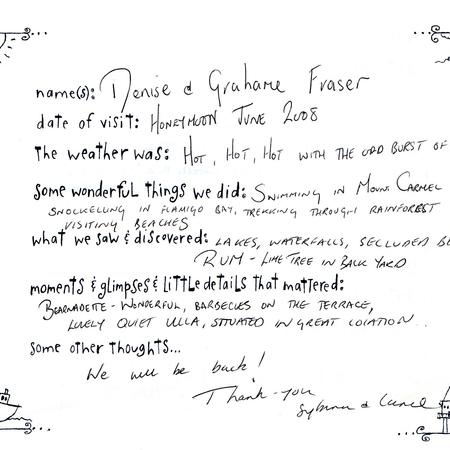 name(s): Denise & Grahame Fraser
date of visit: HONEYMOON JUNE 2008
the weather was: HOT, HOT, HOT WITH THE ODD BURST OF
some wonderful things we did: SWIMMING IN MOUNT CARMEL
SNOCKELLING IN FLAMIGO BAY, TREKKING THROUGH RAINFOREST
VISITING BEACHES
what we saw & discovered: LAKES, WATERFALLS, SECLUDED BE
RUM - LIME TREE IN BACK YARD
moments & glimpses & little details that mattered:
BEARNADETTE - WONDERFUL, BARBECUES ON THE TERRACE,
LOVELY QUIET VILLA, SITUATED IN GREAT LOCATION.
some other thoughts...
We will be back!
Thank-you